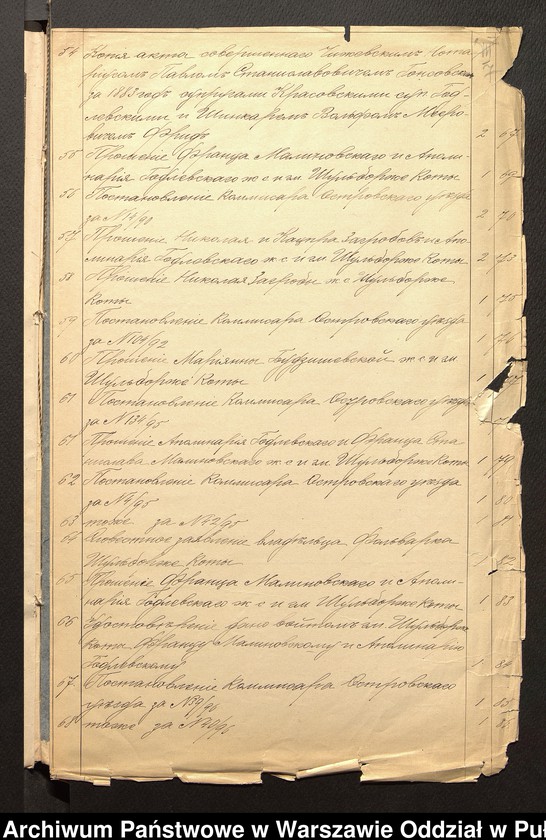 54 Копія акта совершеннаго Чижевскимъ Нота-
ріусомъ Павломъ Станиславовичемъ Гонсовскимъ
за 1883 годъ супругами Красовскими съ Год-
левскими и Шинкаромъ Вольфомъ Мовро-
вичемъ Фридъ 2 67
55 Прошеніе Франца Малиновскаго и Аполи-
нарія Годлевскаго ж с и гм. Шульборже Коты 1 69
56 Постановленіе Коммисара Островскаго уѣзда
за №14/90 2 70
57 Прошеніе Николая и Кацпра Загробовъ и Апо-
линарія Годлевскаго ж с и гм Шульборже Коты 2
58 Прошеніе Николая Загробы ж с Шульборже
Коты 1 75
59 Постановленіе Коммисара Островскаго уѣзда
за №104/92 1 76
60 Прошеніе Маріянны Будзишевской ж с и гм
Шульборже Коты 1
61 Постановленіе Коммисара Островскаго уѣзда
за №134/95
61 Прошеніе Аполинарія Годлевскаго и Франца Ста-
нислава Малиновскаго ж с и гм. Шульборже Коты 1 79
62 Постановленіе Коммисара Островскаго уѣзда
за №4/95 1 80
63 тоже за №42/95 1 81
64 заявленіе владѣльца Фольварка
Шульборже Коты 1 82
65 Прошеніе Франца Малиновскаго и Аполи-
нарія Годлевскаго ж с и гм Шульборже Коты 1 83
66 Удостовѣреніе дано войтомъ гм. Шульборже
Коты Францу Малиновскому и Аполинарію
Годлевскому 1 84
67 Постановленіе Коммисара Островскаго
уѣзда за №39/96 1 85
68 тоже за №40/96 1 86
Archiwum Państwowe w Warszawie Oddział w Puł